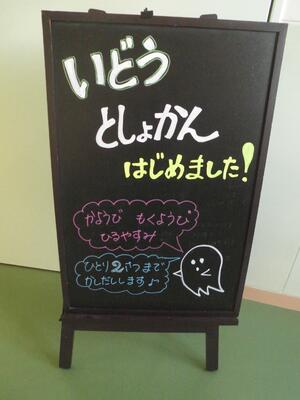 いどう
としょかん
はじめました!
かようび もくようび
ひるやすみ
ひとり2さつまで
かしだしします♪